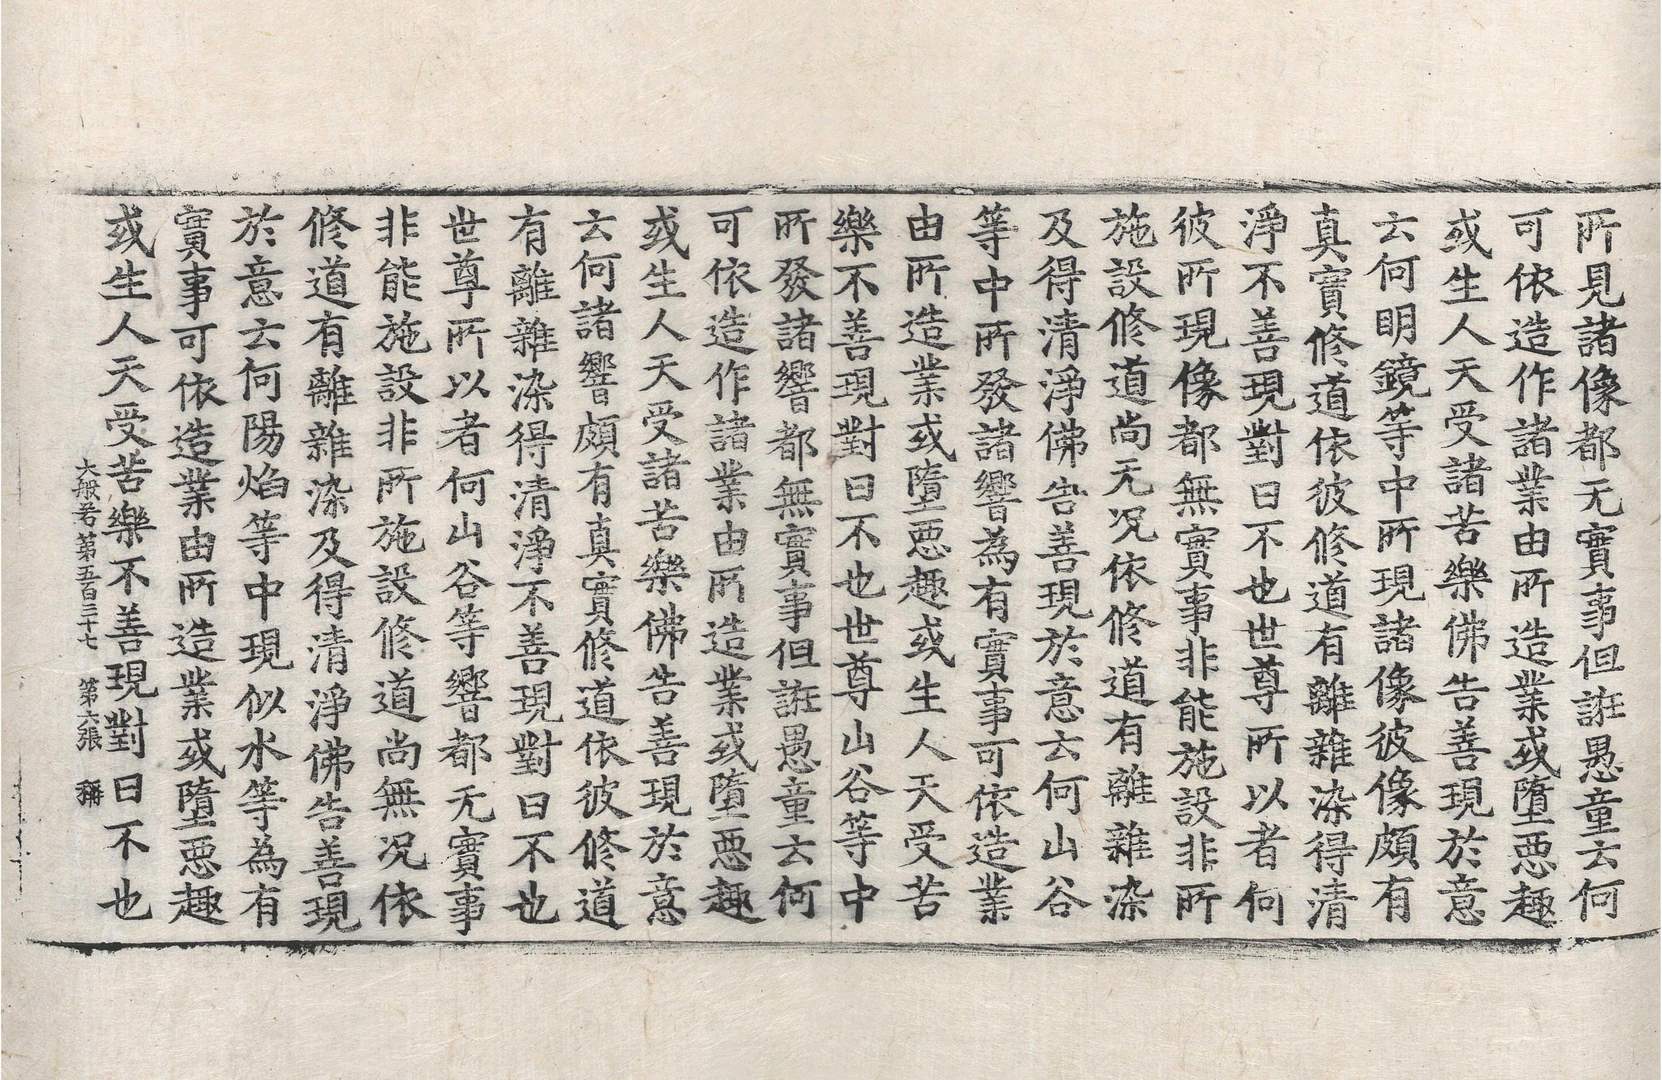 所見諸像都无實事但誑愚童云何
可依造作諸業由所造業或墮惡趣
或生人天受諸苦樂佛告善現於意
云何明鏡等中所現諸像彼像頗有
真實修道依彼修道有離雜染得清
淨不善現對曰不也世尊所以者何
彼所現像都無實事非能施設非所
施設修道尚无况依修道有離雜染
及得清淨佛告善現於意云何山谷
等中所發諸響為有實事可依造業
由所造業或墮惡趣或生人天受苦
樂不善現對曰不也世尊山谷等中
所發諸響都無實事但誑愚童云何
可依造作諸業由所造業或墮惡趣
或生人天受諸苦樂佛告善現於意
云何諸響頗有真實修道依彼修道
有離雜染得清淨不善現對曰不也
世尊所以者何山谷等響都无實事
非能施設非所施設修道尚無况依
修道有離雜染及得清淨佛告善現
於意云何陽焰等中現似水等為有
實事可依造業由所造業或墮惡趣
或生人天受苦樂不善現對曰不也
大般若第五百三十七 第六張 稱